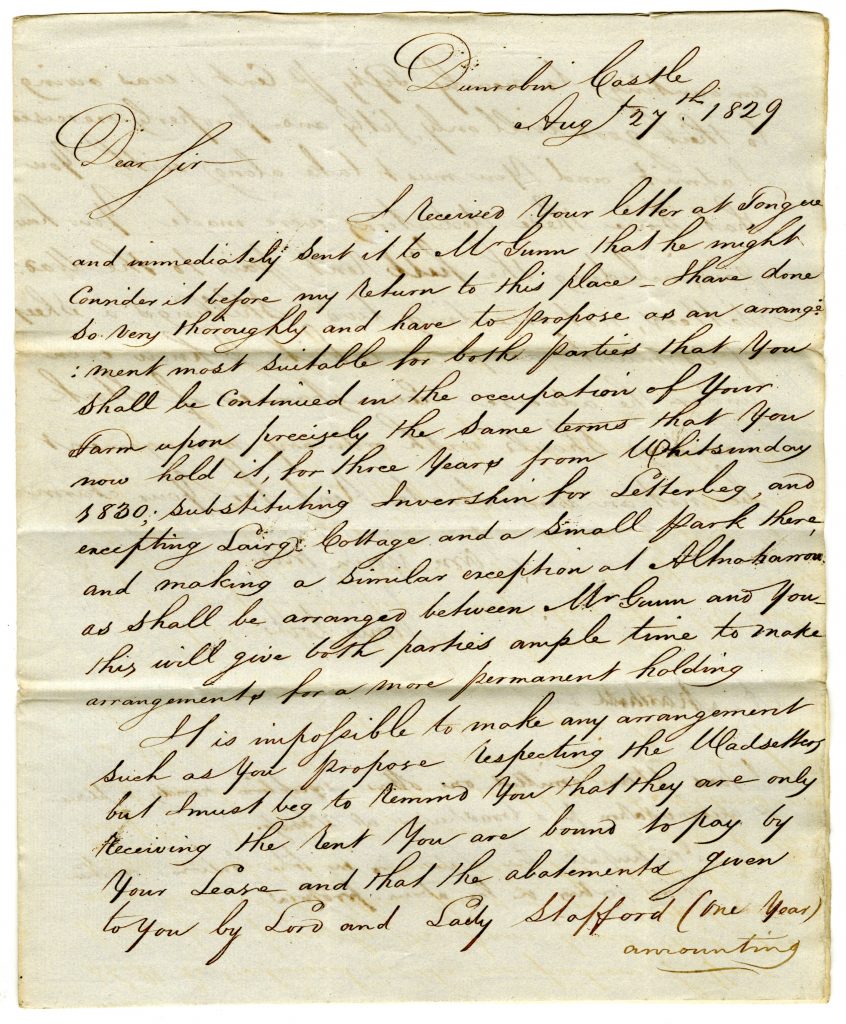 Dunrobin Castle
Augt 27th. 1829
Dear Sir
I received Your letter at Tongue
and immediately sent it to Mr Gunn that he might
Consider it before my return to this place – I have done
so very thoroughly and have to propose as an arrange
:ment most suitable for both parties that You
shall be Continued in the occupation of Your
Farm upon precisely the same terms that You
now hold it, for three Years from Whitsunday
1830; substituting Invershin for Letterbeg, and
excepting Lairg Cottage and a small Park there,
and making a similar exception at Altnaharrow
as shall be arranged between Mr Gunn and You –
this will give both parties ample time to make
arrangements for a more permanent holding
It is impossible to make any arrangement
such as You propose respecting the Wadsetters
but I must beg to remind You that they are only
receiving the rent You are bound to pay by
Your Lease and that the abatements given
to You by Lord and Lady Stafford (One Year)
amounting